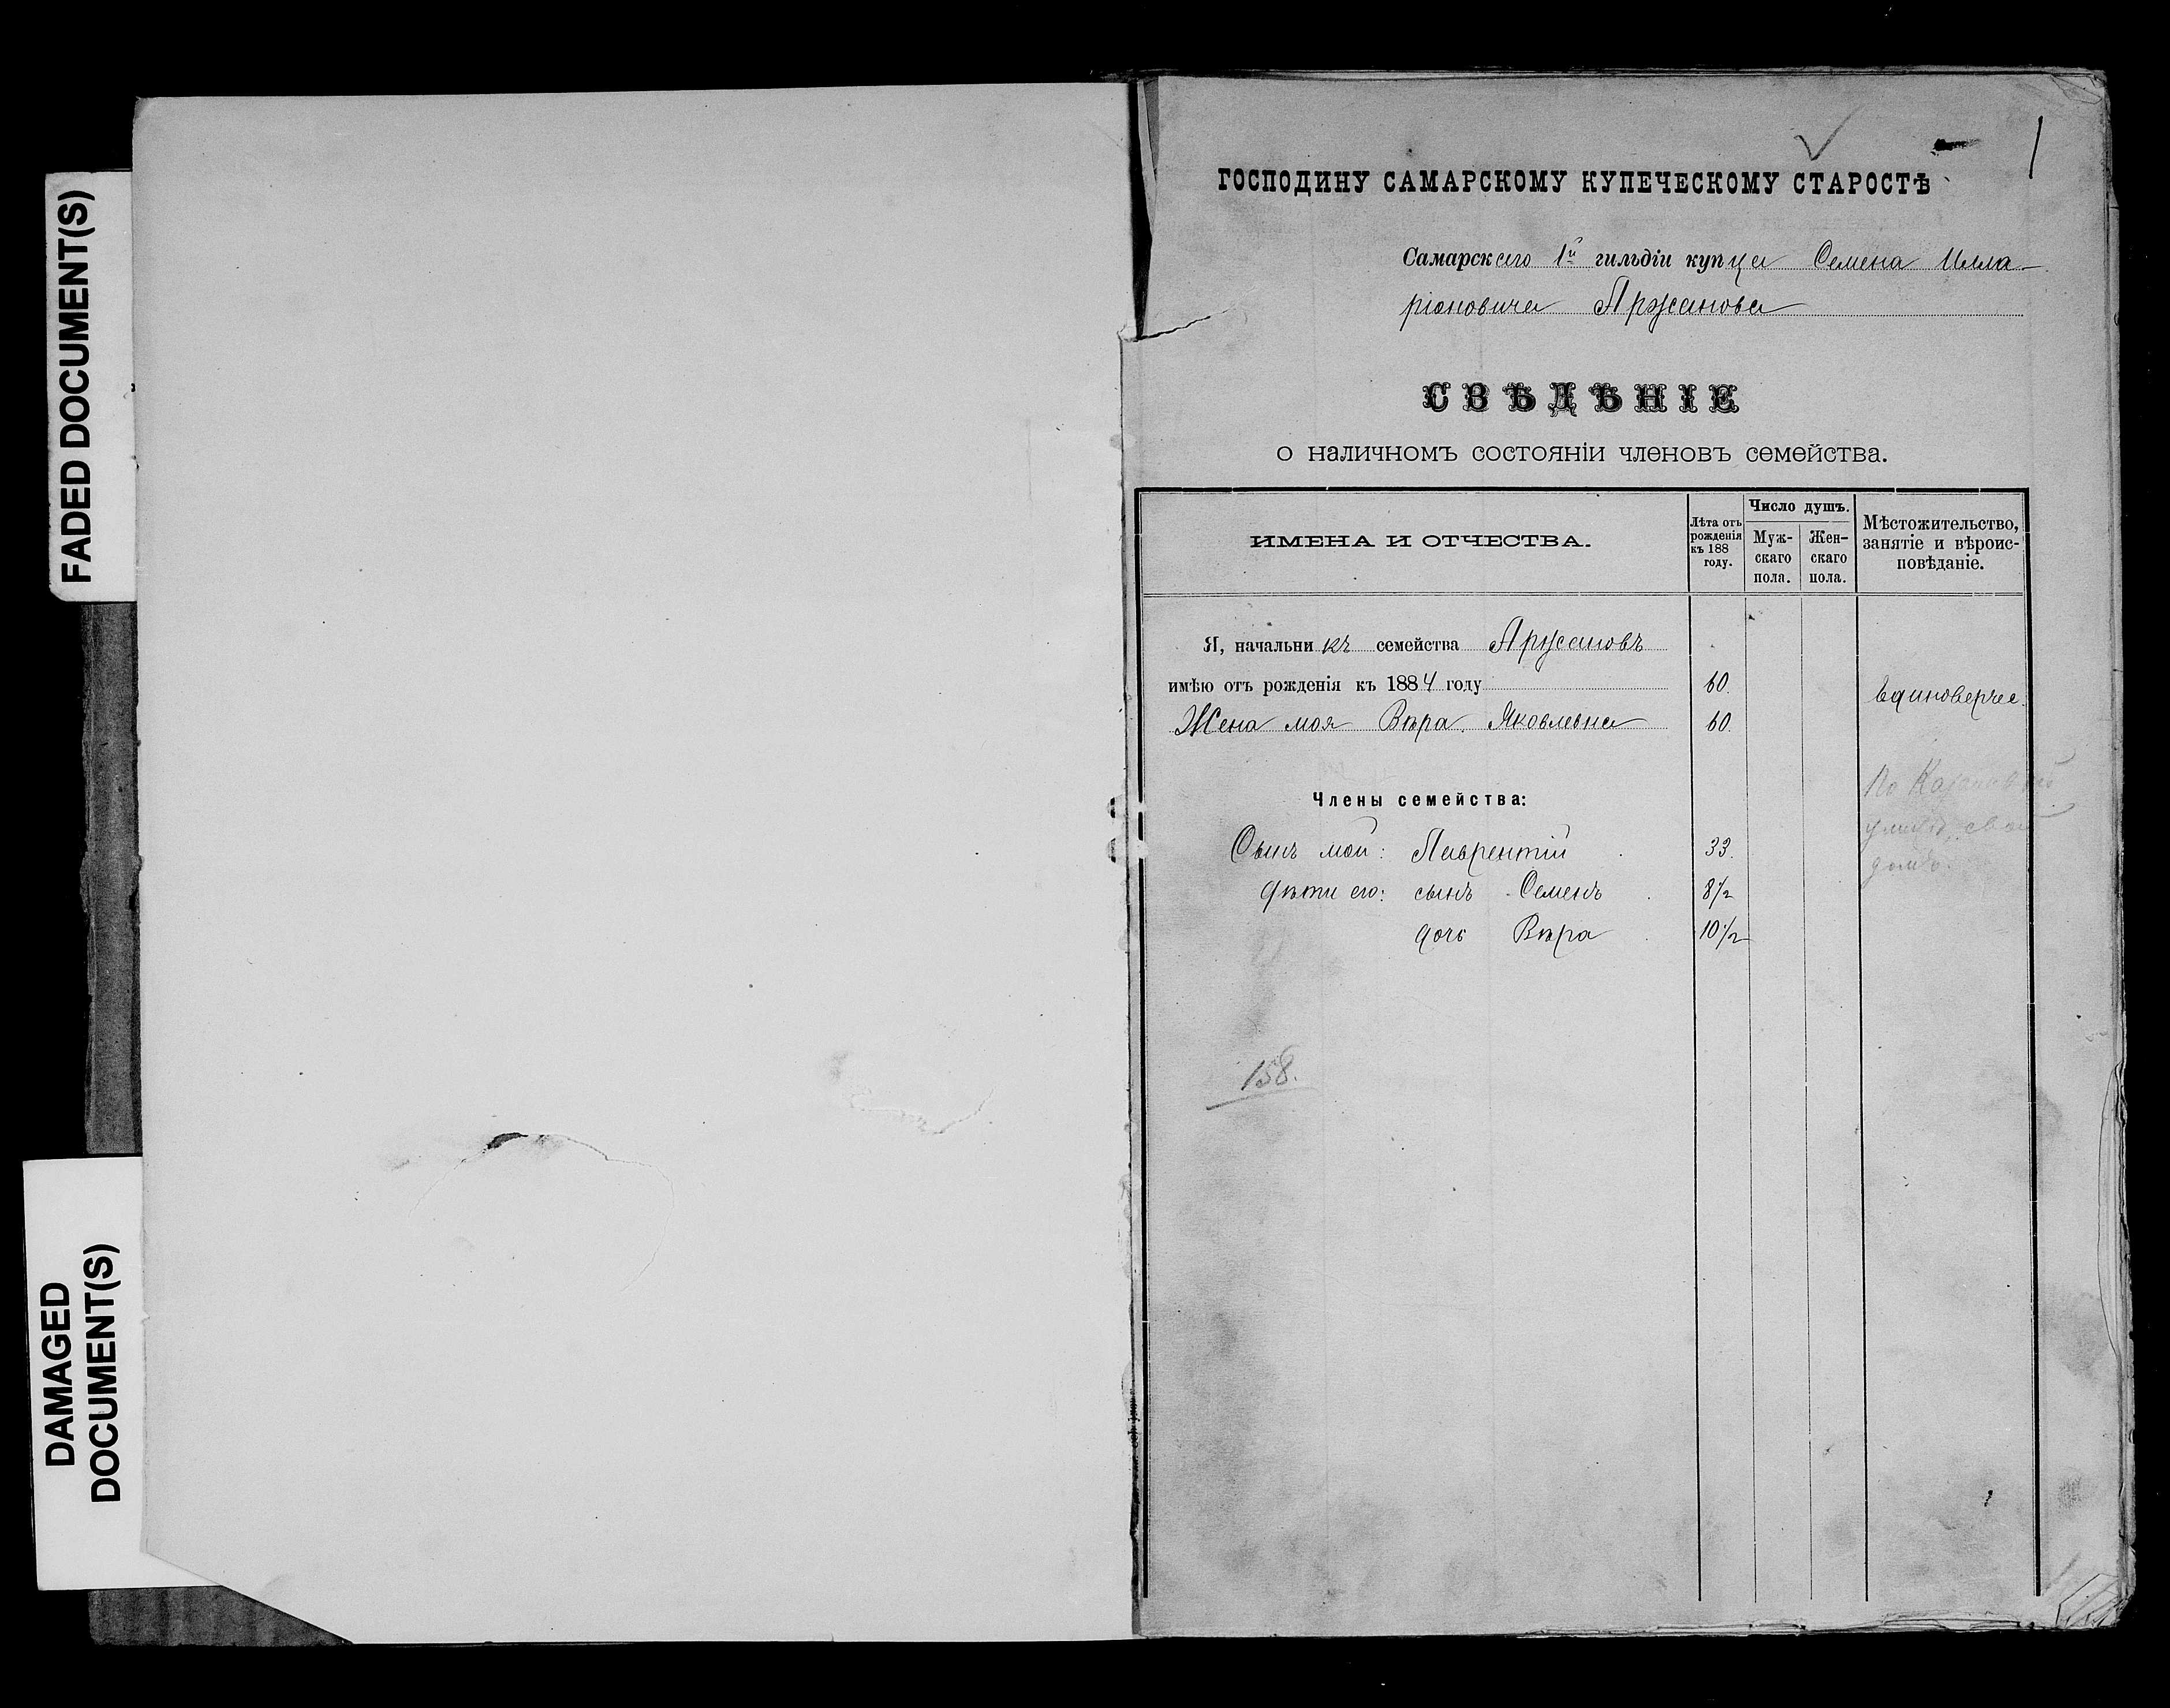 FADED DOCUMENT(S)
DAMAGED
DOCUMENT(S)
1
ГОСПОДИНУ САМАРСКОМУ КУПЕЧЕСКОМУ СТАРОСТѢ
Самарскаго 1й гильдіи купца Семена Илла-
ріоновича Аржанова
СВѢДѢНІЕ
о наличномъ состояніи членовъ семейства.
ИМЕНА И ОТЧЕСТВА.
Лѣта отъ
рожденія
къ 188
году.
Число душъ.
Муж-
скаго
пола.
Жен-
скаго
пола.
Мѣстожительство,
занятіе и вѣроис-
повѣданіе.
Я, начальникъ семейства Аржановъ
имѣю отъ рожденія къ 1884 году 60.
Единоверче
Жена моя Вѣра Яковлевна 60.
Члены семейства:
По
Сынъ мой: Лаврентій 33.
улицѣ, свой
домъ.
дѣти его: сынъ Семенъ 8 1/2
дочь Вѣра 10 1/2
158.